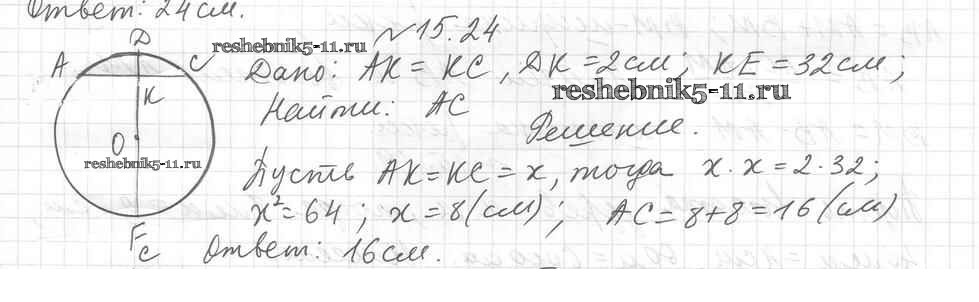 Ответ: 24 см.
№ 15.24
Дано: AK = KC, DK = 2 см; KE = 32 см;
Найти: AC
Решение.
Пусть AK = KC = x, тогда x · x = 2 · 32;
x² = 64; x = 8 (см); AC = 8 + 8 = 16 (см)
Ответ: 16 см.
D
A
C
K
O
E
C
reshebnik5-11.ru
reshebnik5-11.ru
reshebnik5-11.ru